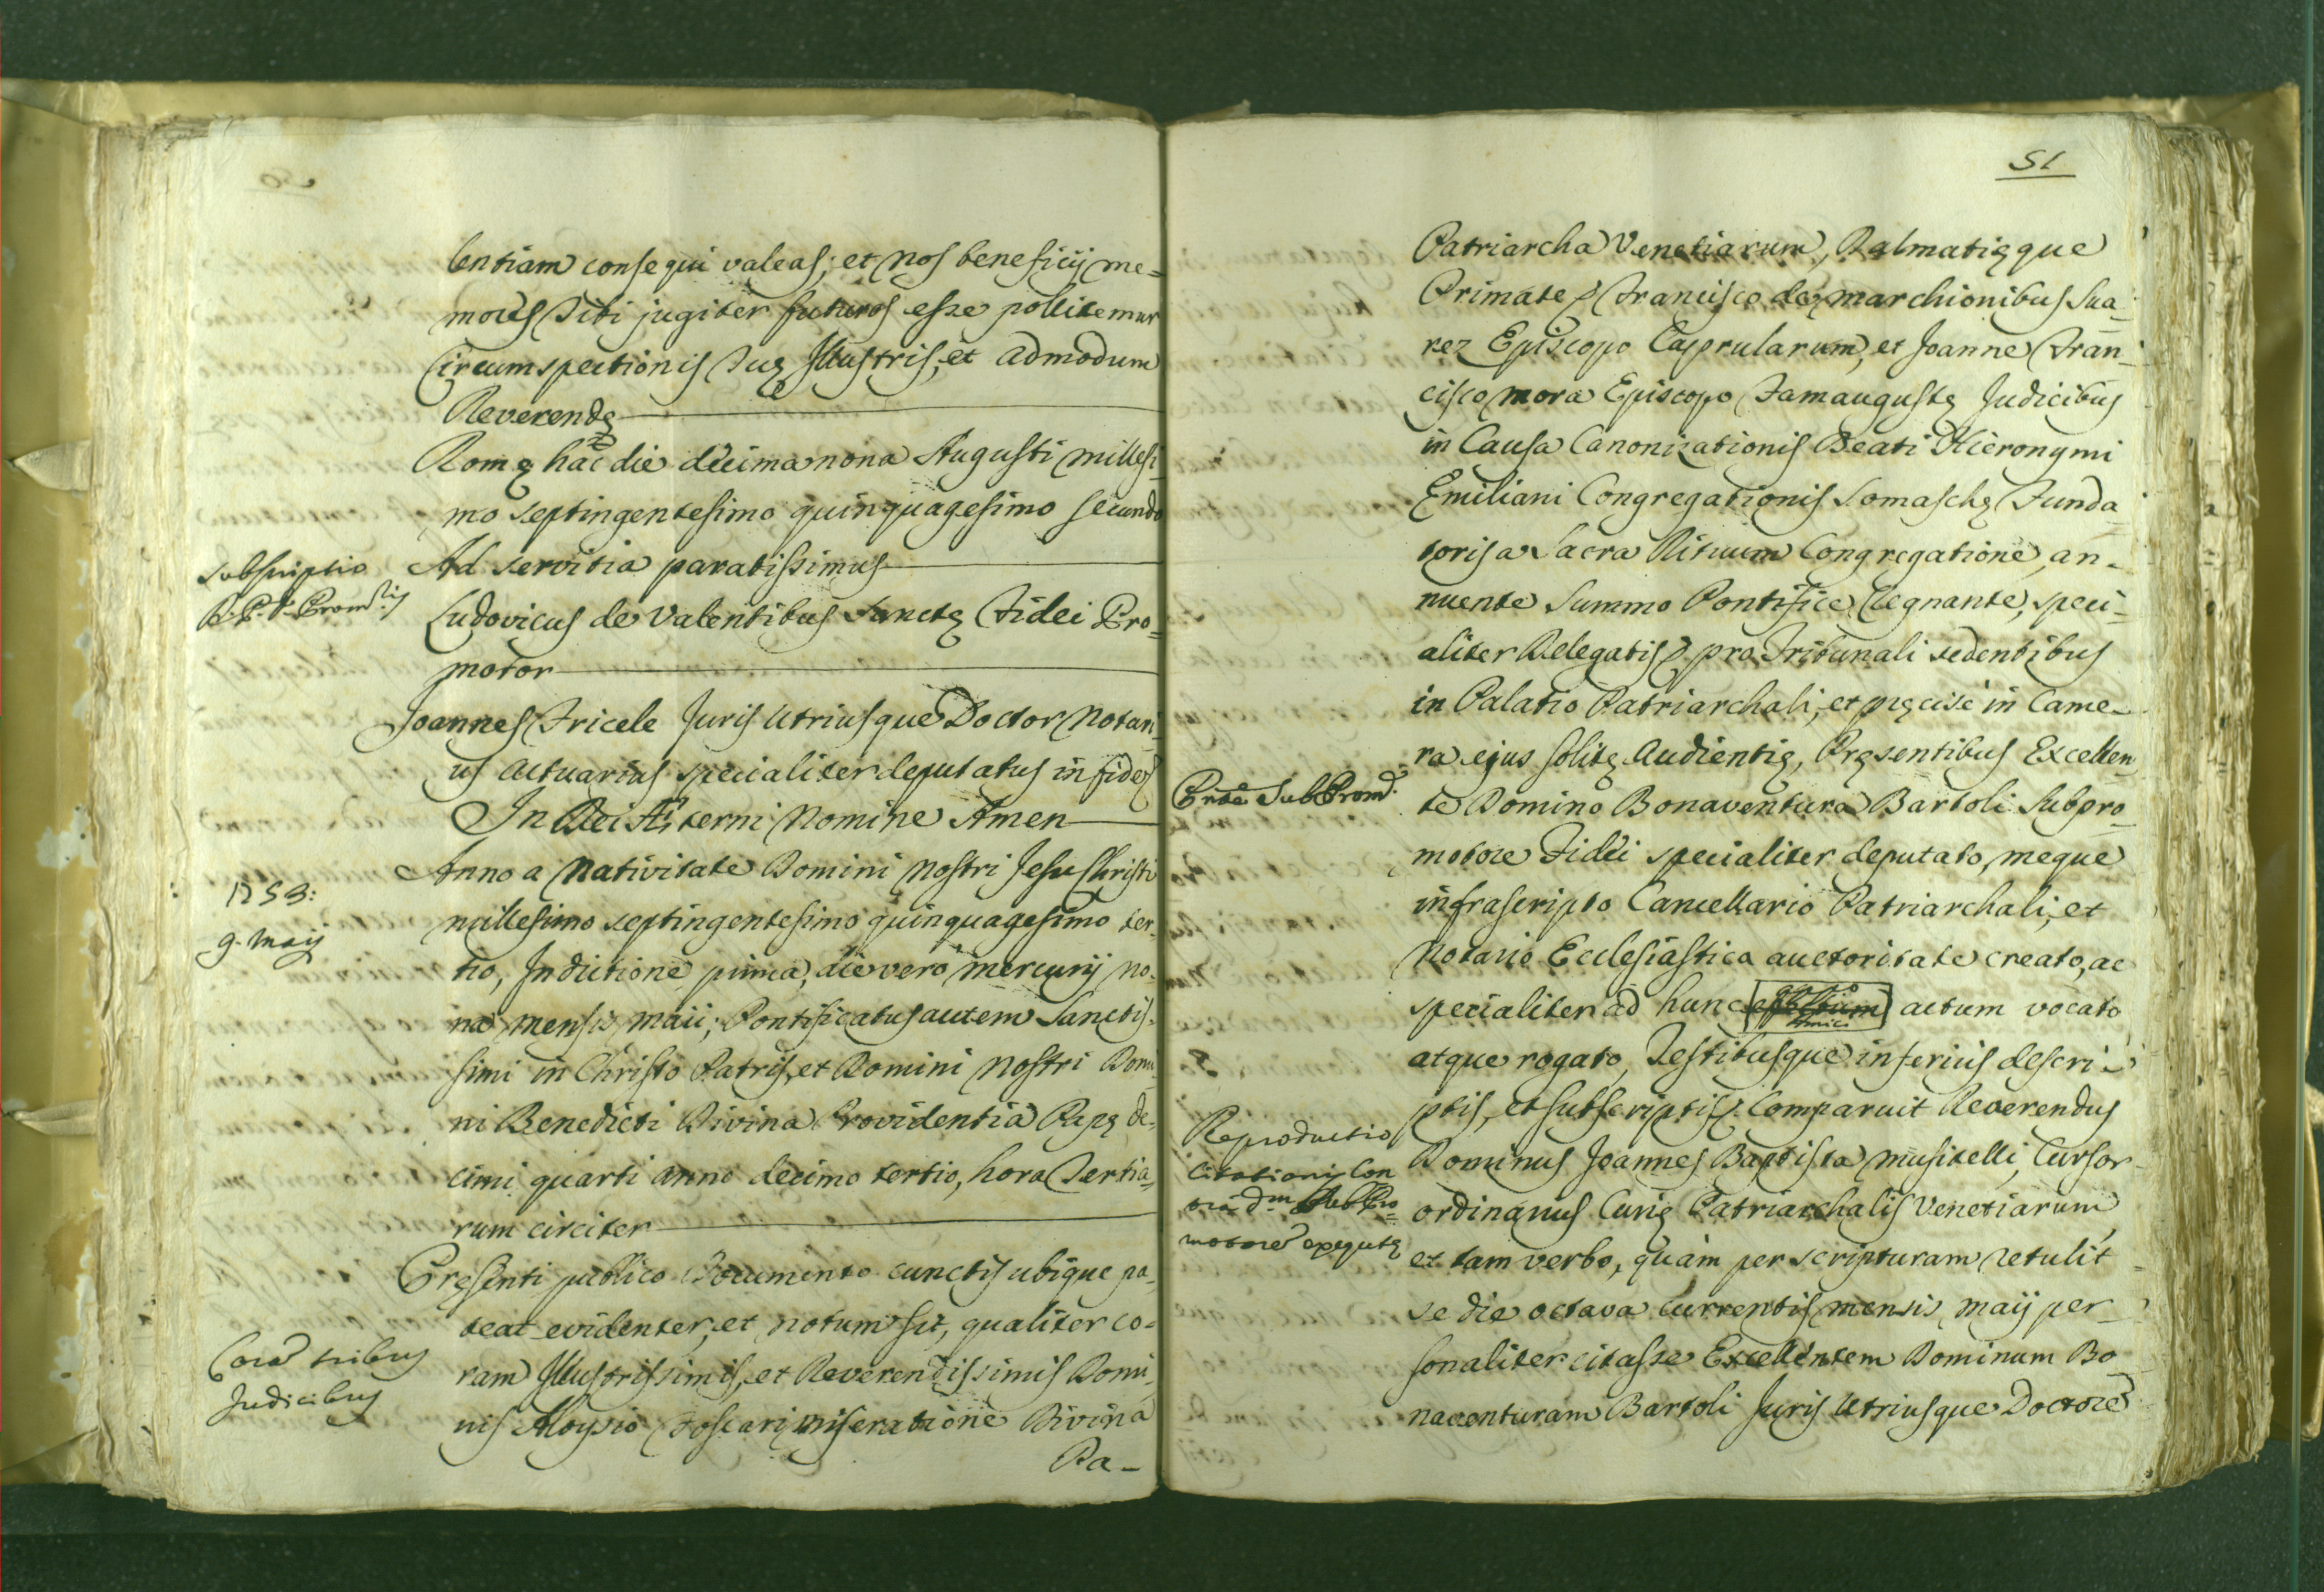 lentiam consequi valeas; et nos beneficij me=
mores Tibi jugiter futuros esse pollicemur
Circumspectionis Tuę Illustris, et admodum
Reverendę
Romę hac die decima nona Augusti millesi-
mo septingentesimo quinquagesimo secundo
Subscriptio
R. P. D. Promris
Ad servitia paratissimus
Ludovicus de Valentibus Sanctę Fidei Pro=
motor
Joannes Tricele Juris Utriusque Doctor Notari
us Actuarius specialiter deputatus in fidem
In Dei Æterni Nomine Amen
1753:
9. Maij
Anno a Nativitate Domini Nostri Jesu Christi
millesimo septingentesimo quinquagesimo ter-
tio, Indictione prima, die vero Mercurij no-
na mensis Maii; Pontificatus autem Sanctis-
simi in Christo Patris, et Domini Nostri Domi-
ni Benedicti Divina Providentia Papę de-
cimi quarti anno decimo tertio, hora Tertia-
rum circiter
Coram tribus
Judicibus
Pręsenti publico Documento cunctis ubique pa-
teat evidenter, et notum sit, qualiter co=
ram Illustrissimis, et Reverendissimis Domi-
nis Aloysio Foscari miseratione Divina
Pa-
51
Patriarcha Venetiarum, Dalmatięque
Primate, Francisco de Marchionibus Sua-
rez Episcopo Caprularum, et Joanne Fran-
cisco Mora Episcopo Famaugustę Judicibus
in Causa Canonizationis Beati Hieronymi
Emiliani Congregationis Somaschę Funda-
toris a Sacra Rituum Congregatione, an-
nuente Summo Pontifice Regnante, speci-
aliter Delegatis, pro Tribunali sedentibus
in Palatio Patriarchali, et pręcisè in Came-
ra ejus solitę Audientię, Pręsentibus Excellen
Pntē SubProm.
te Domino Bonaventura Bartoli Subpro-
motore Fidei specialiter deputato, meque
infrascripto Cancellario Patriarchali, et
Notario Ecclesiastica auctoritate creato, ac
specialiter ad hunc actum vocato
atque rogato, Testibusque inferius descri-
ptis, et subscriptis Comparuit Reverendus
Reproductio
Citationis con
tra dm SubPro=
motorē exequtę
Dominus Joannes Baptista Musitelli, Cursor
ordinarius Curię Patriarchalis Venetiarum,
et tam verbo, quàm per scripturam retulit
se die octava currentis mensis Maij per-
sonaliter citasse Excellentem Dominum Bo
naventuram Bartoli Juris Utriusque Doctorē